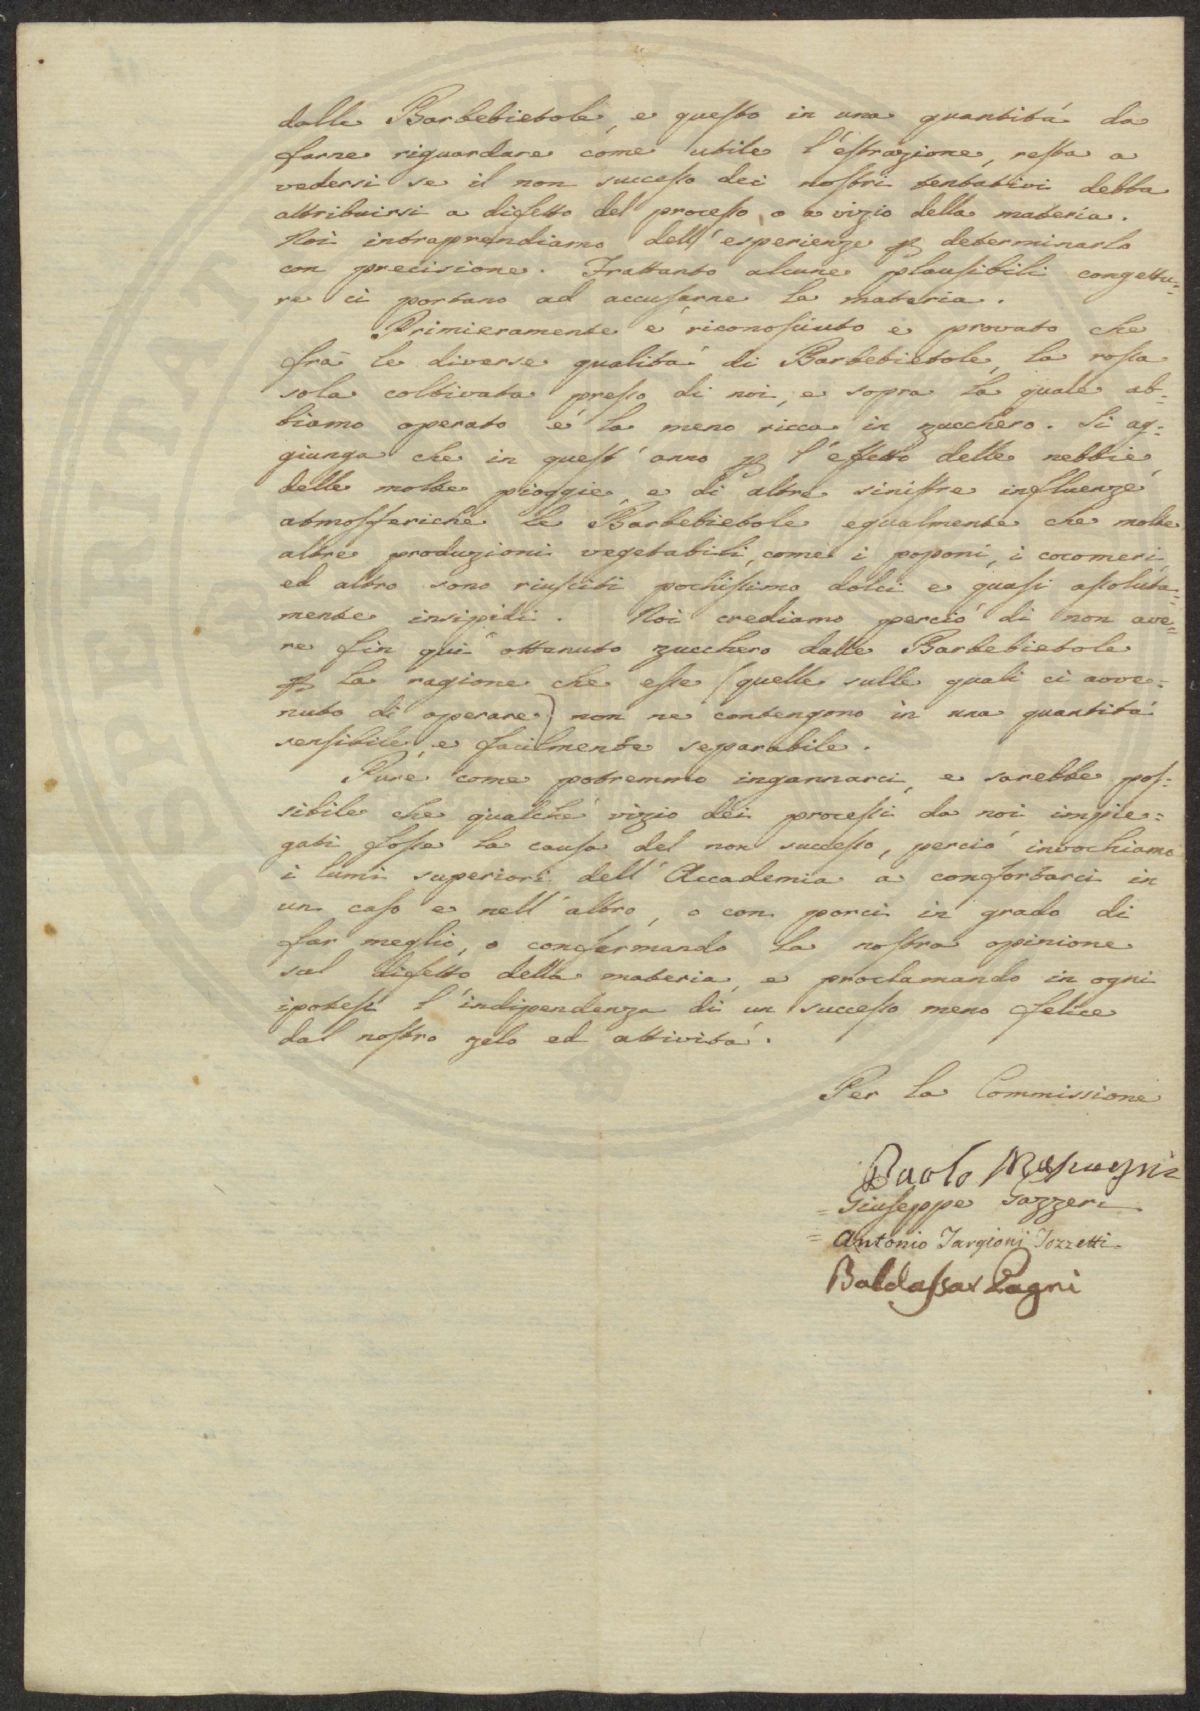 dalle Barbebietole, e questo in una quantitá da
farne riguardare come utile l'estrazione, resta a
vedersi se il non successo dei nostri tentativi debba
attribuirsi a difetto del processo, o a vizio della materia.
Noi intraprendiamo dell'esperienze p determinarlo
con precisione. Frattanto alcune plausibili congettu=
re ci portano ad accusarne la materia.
Primieramente é riconosciuto e provato che
frà le diverse qualitá di Barbebietole, la rossa
sola coltivata presso di noi, e sopra la quale ab=
biamo operato é la meno ricca in zucchero. Si ag=
giunga che in quest'anno p l'effetto delle nebbie,
delle molte pioggie, e di altre sinistre influenze
atmosferiche le Barbebietole egualmente che molte
altre produzioni vegetabili, come i poponi, i cocomeri,
ed altro sono riusciti pochissimo dolci e quasi assoluta=
mente insipidi. Noi crediamo perció di non ave=
re fin quí ottenuto zucchero dalle Barbebietole
p la ragione che esse (quelle sulle quali ci avve=
nuto di operare) non ne contengono in una quantitá
sensibile, e facilmente separabile.
Pure come potremmo ingannarci, e sarebbe pos=
sibile che qualche vizio dei processi da noi impie=
gati fosse la causa del non successo, perció invochiamo
i lumi superiori dell'Accademia a confortarci in
un caso e nell'altro, o con porci in grado di
far meglio, o confermando la nostra opinione
sul difetto della materia, e proclamando in ogni
ipotesi l'indipendenza di un successo meno felice
dal nostro zelo ed attivitá.
Per la Commissione
Paolo Mascagni
= Giuseppe Gazzeri
= Antonio Targioni Tozzetti
Baldassar Pagni